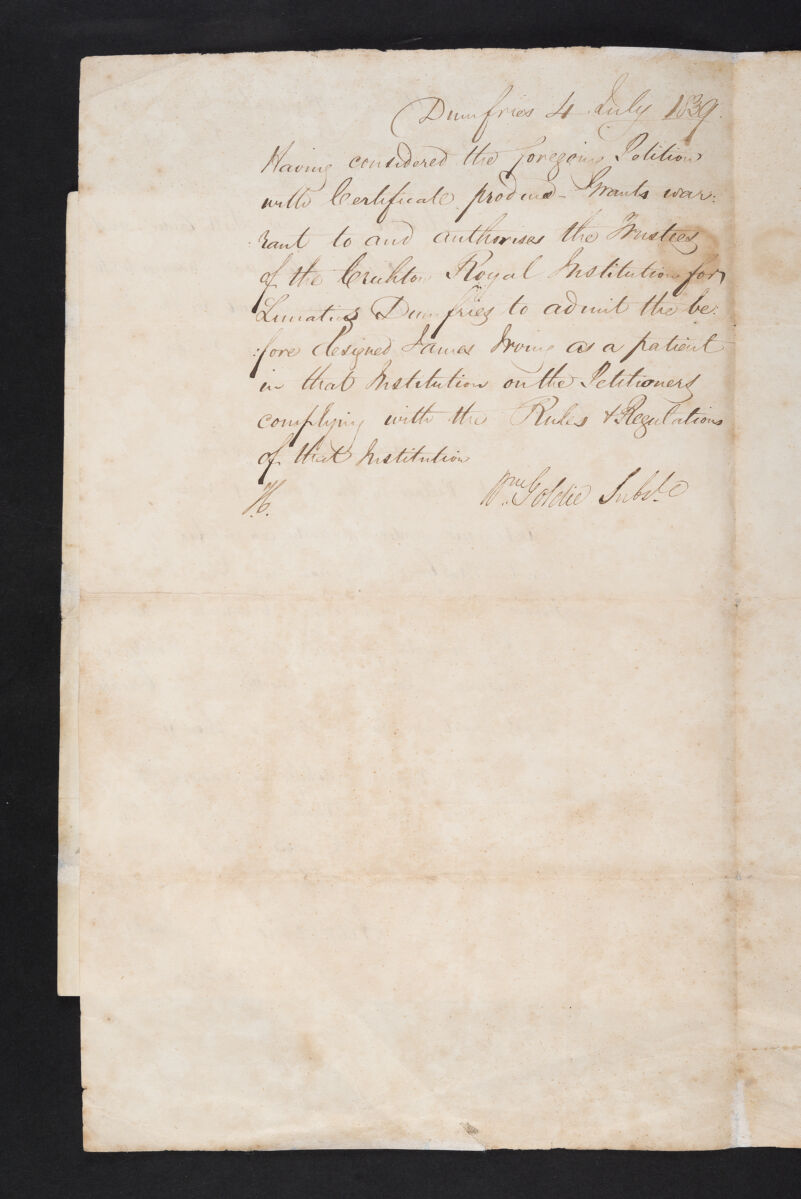 Dumfries 4 July 1839.
Having considered the foregoing Petition
with Certificate produced – Grants war:
:rant to and authorises the Trustees
of the Crichton Royal Institution for
Lunatics Dumfries to admit the be:
:fore designed James Irving as a patient
in that Institution on the Petitioners
complying with the Rules & Regulations
of that Institution
Wm Goldie Subste
H.